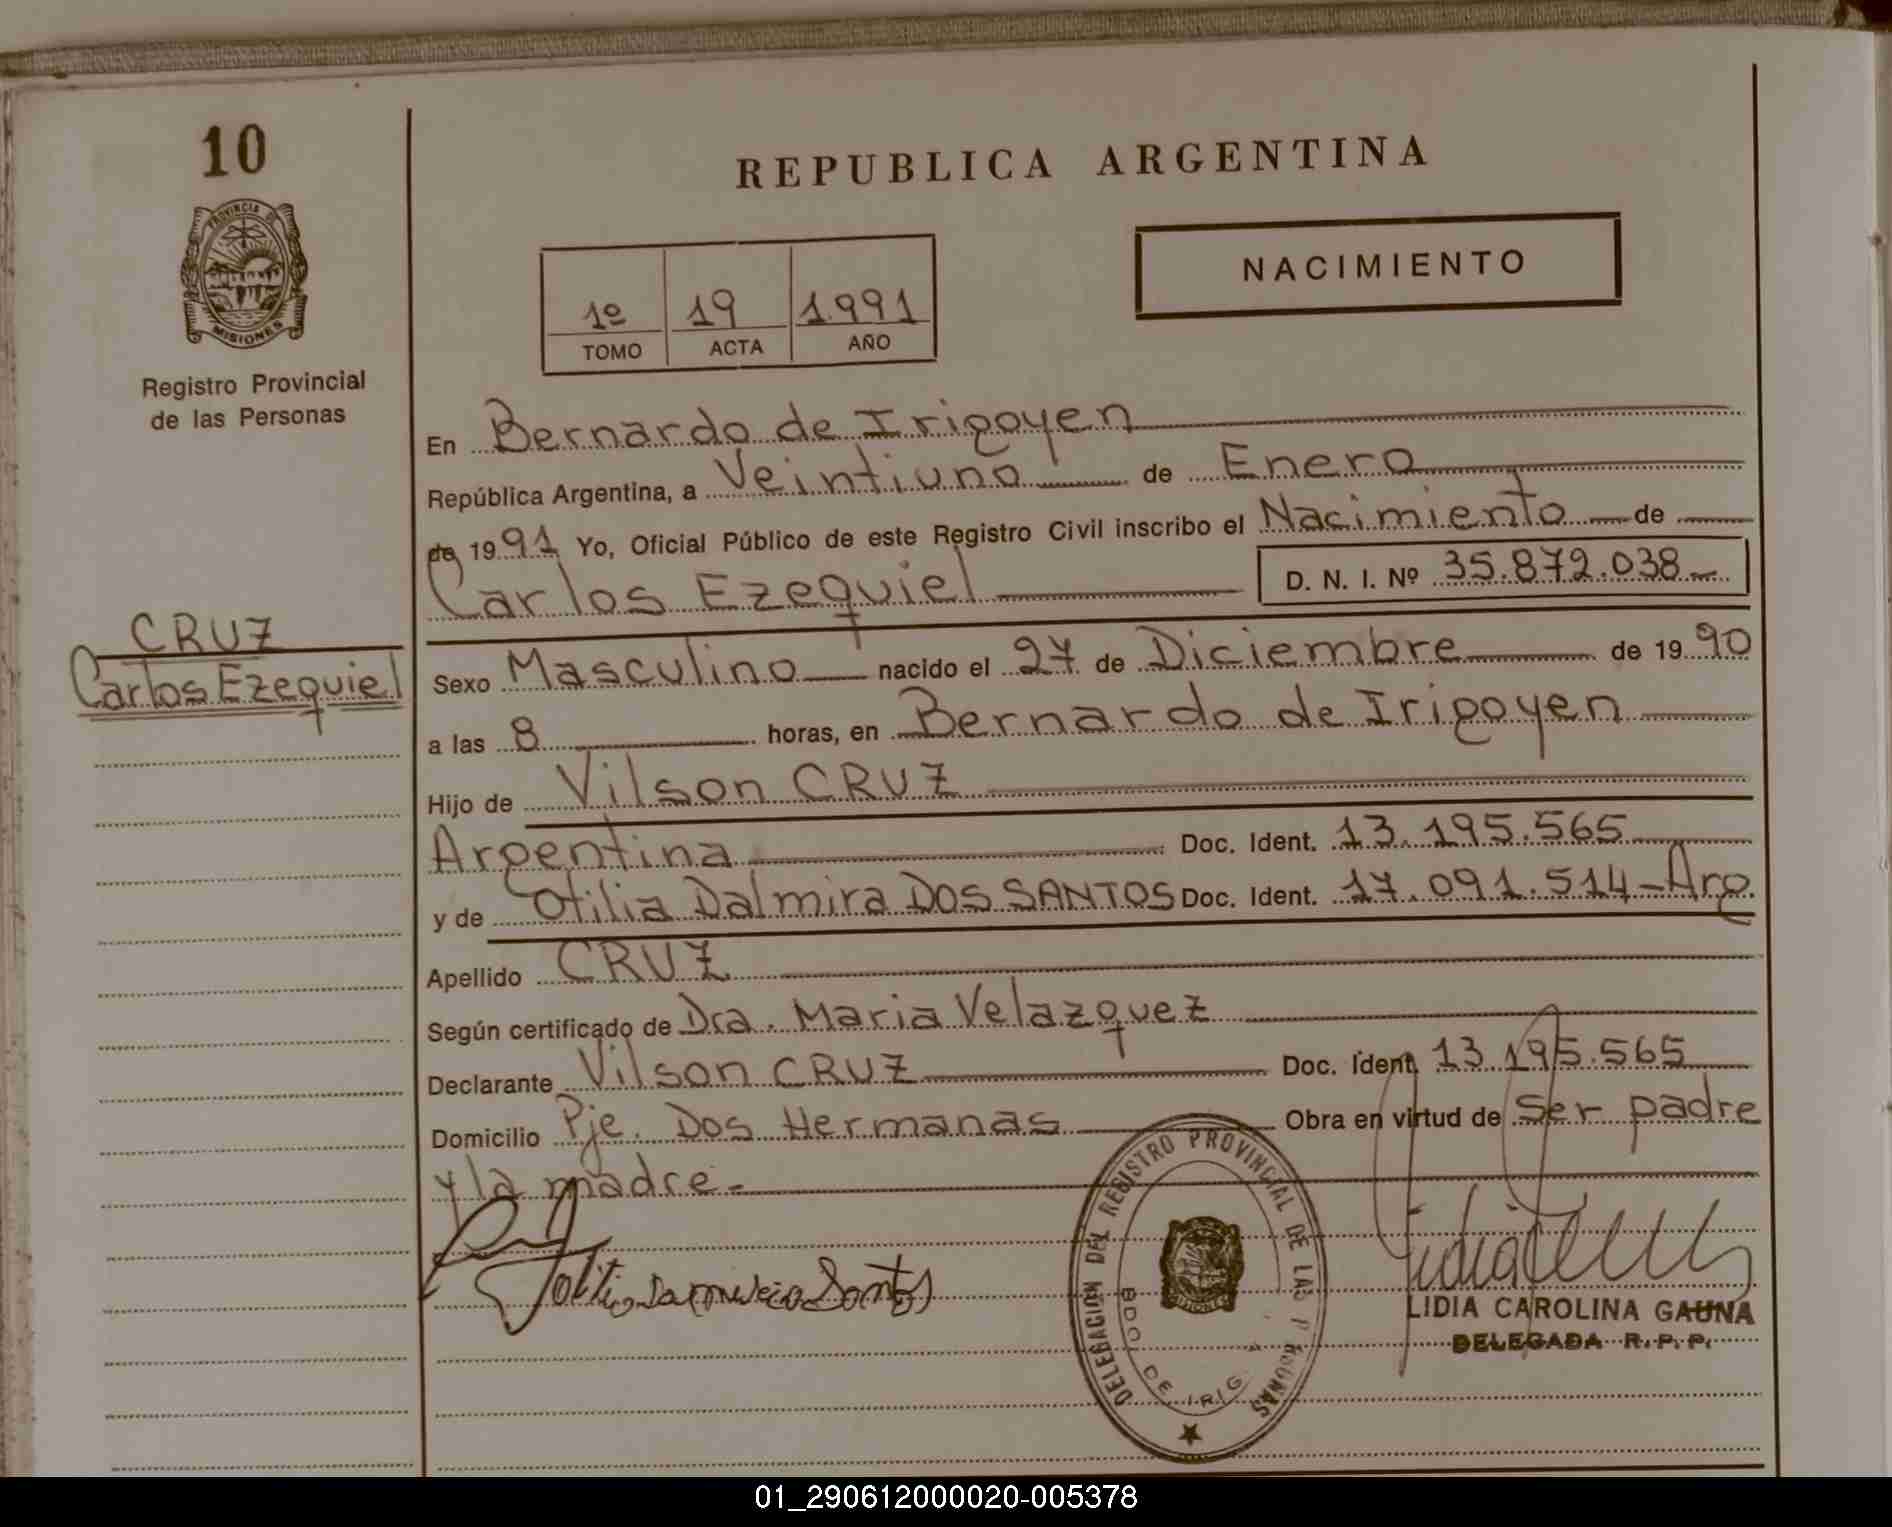 10
PROVINCIA DE
MISIONES
Registro Provincial
de las Personas
CRUZ
Carlos Ezequiel
REPUBLICA ARGENTINA
NACIMIENTO
1º 19 1.991
TOMO ACTA AÑO
En Bernardo de Irigoyen
República Argentina, a Veintiuno de Enero
de 1991 Yo, Oficial Público de este Registro Civil inscribo el Nacimiento de
Carlos Ezequiel D. N. I. Nº 35.872.038
Sexo Masculino nacido el 27 de Diciembre de 1990
a las 8 horas, en Bernardo de Irigoyen
Hijo de Vilson CRUZ
Argentina Doc. Ident. 13.195.565
y de Otilia Dalmira DOS SANTOS Doc. Ident. 17.091.514-Arg.
Apellido CRUZ
Según certificado de Dra. Maria Velazquez
Declarante Vilson CRUZ Doc. Ident. 13.195.565
Domicilio Pje. Dos Hermanas Obra en virtud de Ser padre
y la madre.-
DELEGACION DEL REGISTRO PROVINCIAL DE LAS PERSONAS
BDO. DE IRIG
LIDIA CAROLINA GAUNA
DELEGADA R. P. P.
01_290612000020-005378